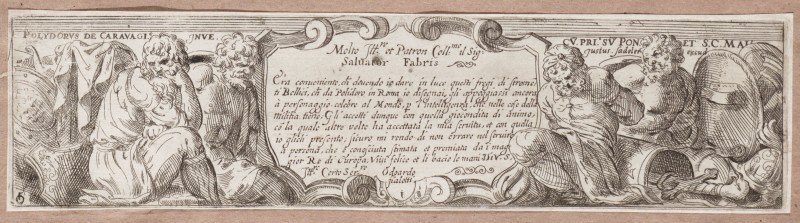 POLYDORVS DE CARAVAGI. INVE.
CV. PRI. SV PON. ET S.C. MAI.
Justus sadeler excud
Molto Ill.re et Patron Coll.mo il Sig.
Salvator Fabris
Era conveniente, ch dovendo io dare in luce questi fregi di strome-
ti Bellici, ch da Polidoro in Roma io disegnai, gli appoggiassi ancora
à personaggio celebre al Mondo, p l'intelligenza nelle cose della
militia
Gli accetti dunque con quella giocondità di animo,
cō la quale altre volte ha accettata la mia servitu, et con quella
io glieli presento, sicuro mi rendo di non errare nel servire
à persona, che è conosciuta stimata et premiata da i mag-
gior Re di Europa. Viva felice et li bacio le mani
Ill.re Certo Ser.re Odgardo